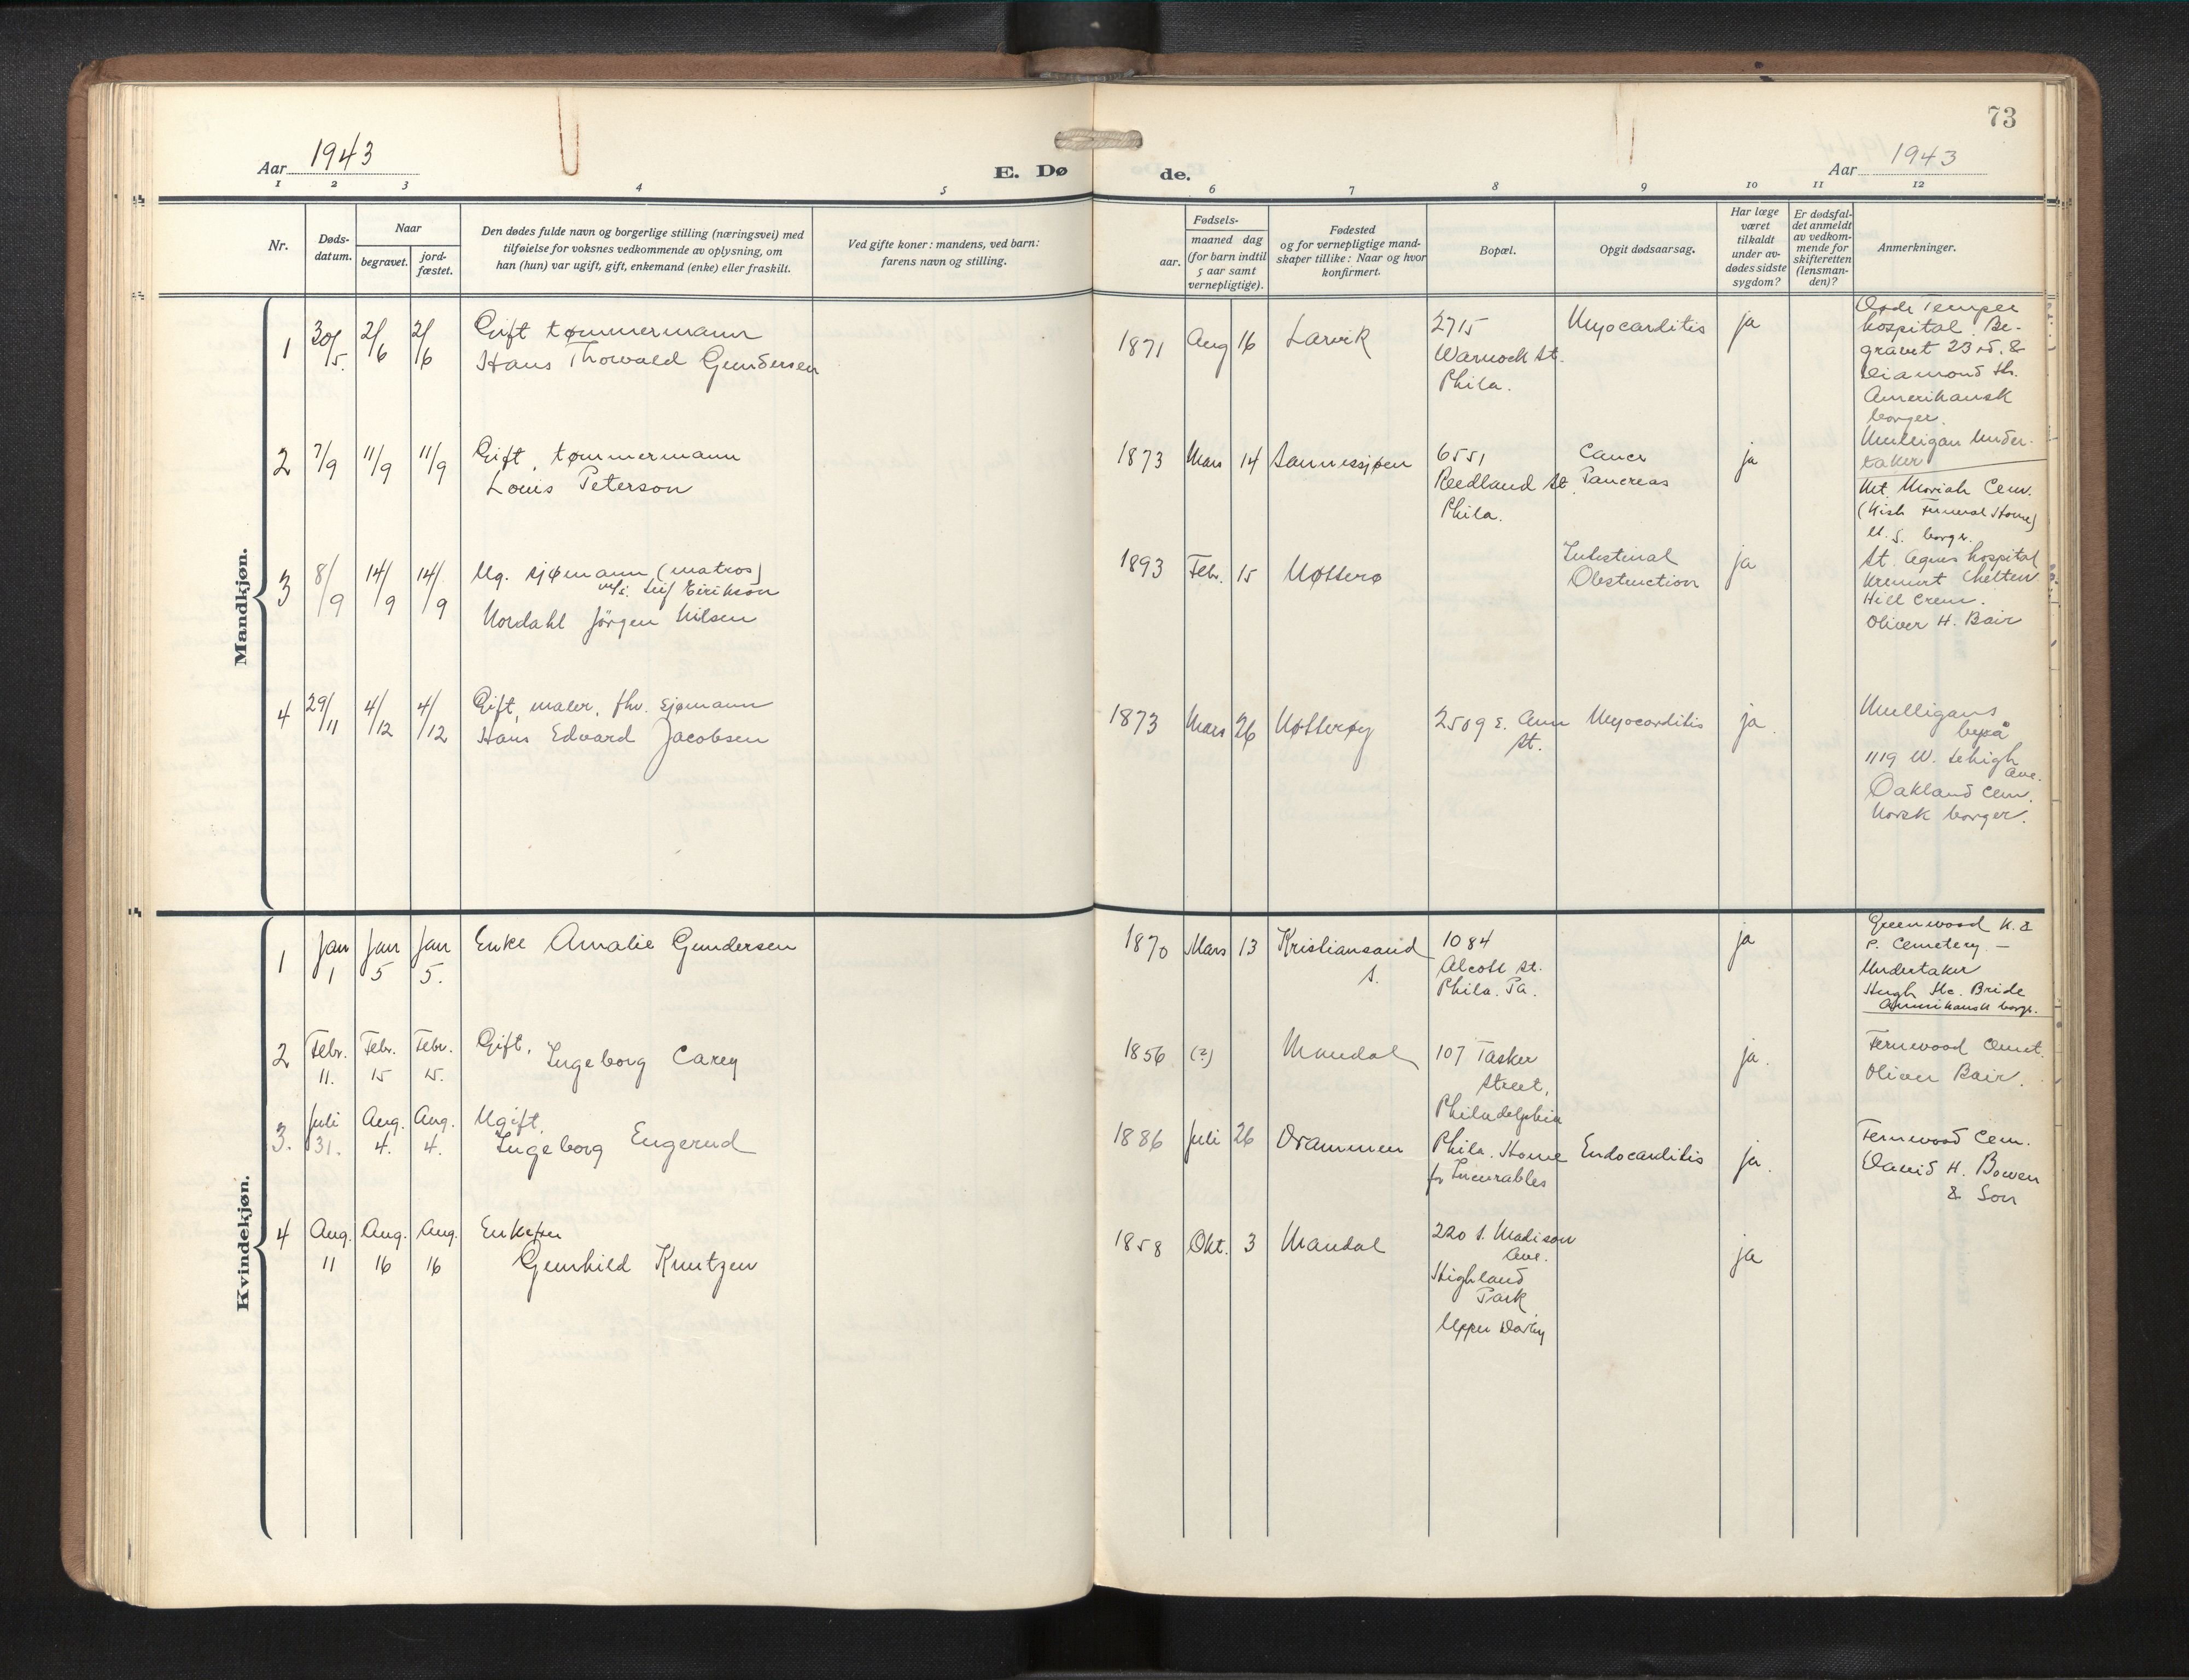 73
Aar 1943
E. Dø de.
Aar 1943
1 2 3 4 5 6 7 8 9 10 11 12
Nr.
Døds-
datum.
Naar
begravet.
jord-
fæstet.
Den dødes fulde navn og borgerlige stilling (næringsvei) med
tilføielse for voksnes vedkommende av oplysning, om
han (hun) var ugift, gift, enkemand (enke) eller fraskilt.
Ved gifte koner: mandens, ved barn:
farens navn og stilling.
Fødsels-
aar.
maaned dag
(for barn indtil
5 aar samt
vernepligtige).
Fødested
og for vernepligtige mand-
skaper tillike: Naar og hvor
konfirmert.
Bopæl.
Opgit dødsaarsag.
Har læge
været
tilkaldt
under av-
dødes sidste
sygdom?
Er dødsfal-
det anmeldt
av vedkom-
mende for
skifteretten
(lensman-
den)?
Anmerkninger.
Mandkjøn.
1 30/5. 2/6 2/6
Gift tømmermann
Hans Thorvald Gundersen
1871 Aug 16 Larvik
2715
Warnock St.
Phila.
Myocarditis
ja
Temple
hospital. Be-
gravet 23 rd. &
Diamond St.
Amerikansk
borger.
Mulligan Under-
taker
2 7/9 11/9 11/9
Gift, tømmermann
Louis Peterson
1873 Mars 14 Sannessjøen
6551
Reedland St.
Phila.
Cancer
Pancreas
ja
Mt. Moriah Cem.
(Kish Funeral Home)
U. S. borger.
3 8/9 14/9 14/9
Ug. sjømann (matros)
m/s. Leif Eirikson
Nordahl Jörgen Nilsen
1893 Febr. 15 Nøtterø
Intestinal
Obstruction
ja
St. Agnes hospital
Kremert Chelten
Hill Crem.
Oliver H. Bair
4 29/11 4/12 4/12
Gift, maler, fhv. sjømann
Hans Edvard Jacobsen
1873 Mars 26 Nøtterøy
2509 E. Ann
St.
Myocarditis
ja.
Mulligans
byrå
1119 W. Lehigh
Ave.
Oakland Cem.
Norsk borger.
Kvindekjøn.
1 Jan 1 Jan 5 Jan 5.
Enke Amalie Gundersen
1870 Mars 13 Kristiansand
S.
1084
Alcott St.
Phila. Pa.
ja
Greenwood K. &
P. Cemetery. —
Undertaker
Hugh Mc. Bride
Amerikansk borger.
2 Febr. 11. Febr. 15 Febr. 15.
Gift,
Ingeborg Carey
1856 (?) Mandal
107 Tasker
Street,
Philadelphia
ja.
Fernwood Cemet.
Oliver Bair.
3. Juli 31. Aug. 4. Aug. 4.
Ugift,
Ingeborg Engerud
1886 Juli 26 Drammen
Phila. Home
for Incurables
Endocarditis
ja.
Fernwood Cem.
David H. Bowen
& Son
4 Aug. 11 Aug. 16 Aug. 16
Enkefru
Gunhild Knutzen
1858 Okt. 3 Mandal
220 S. Madison
Ave.
Highland
Park
Upper Darby
ja